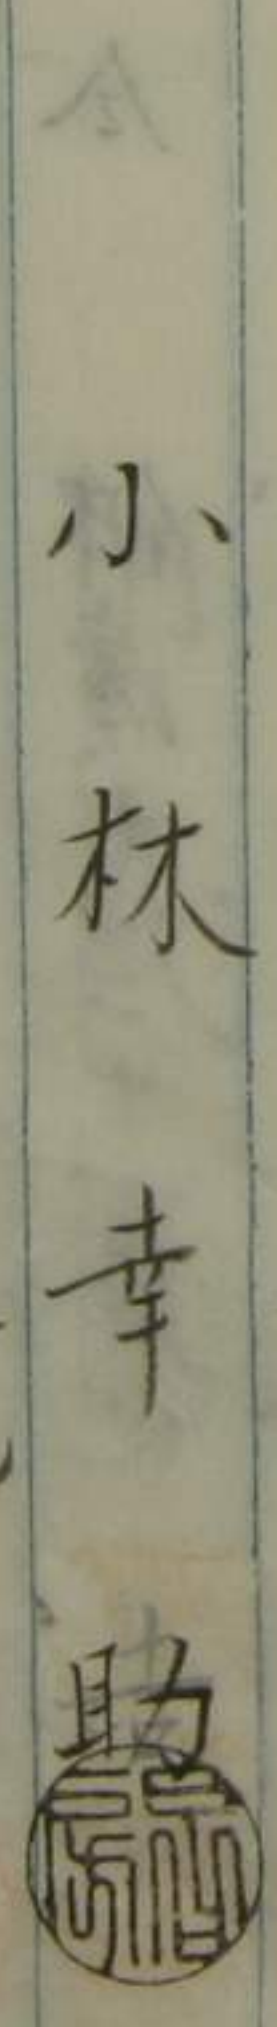 小林幸助